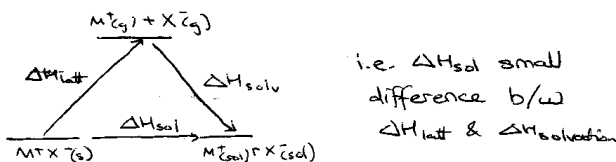 M⁺(g) + X⁻(g)
ΔHlatt
ΔHsolv
ΔHsol
M⁺X⁻(s)
M⁺(sol) + X⁻(sol)
i.e. ΔHsol small
difference b/w
ΔHlatt & ΔHsolvation